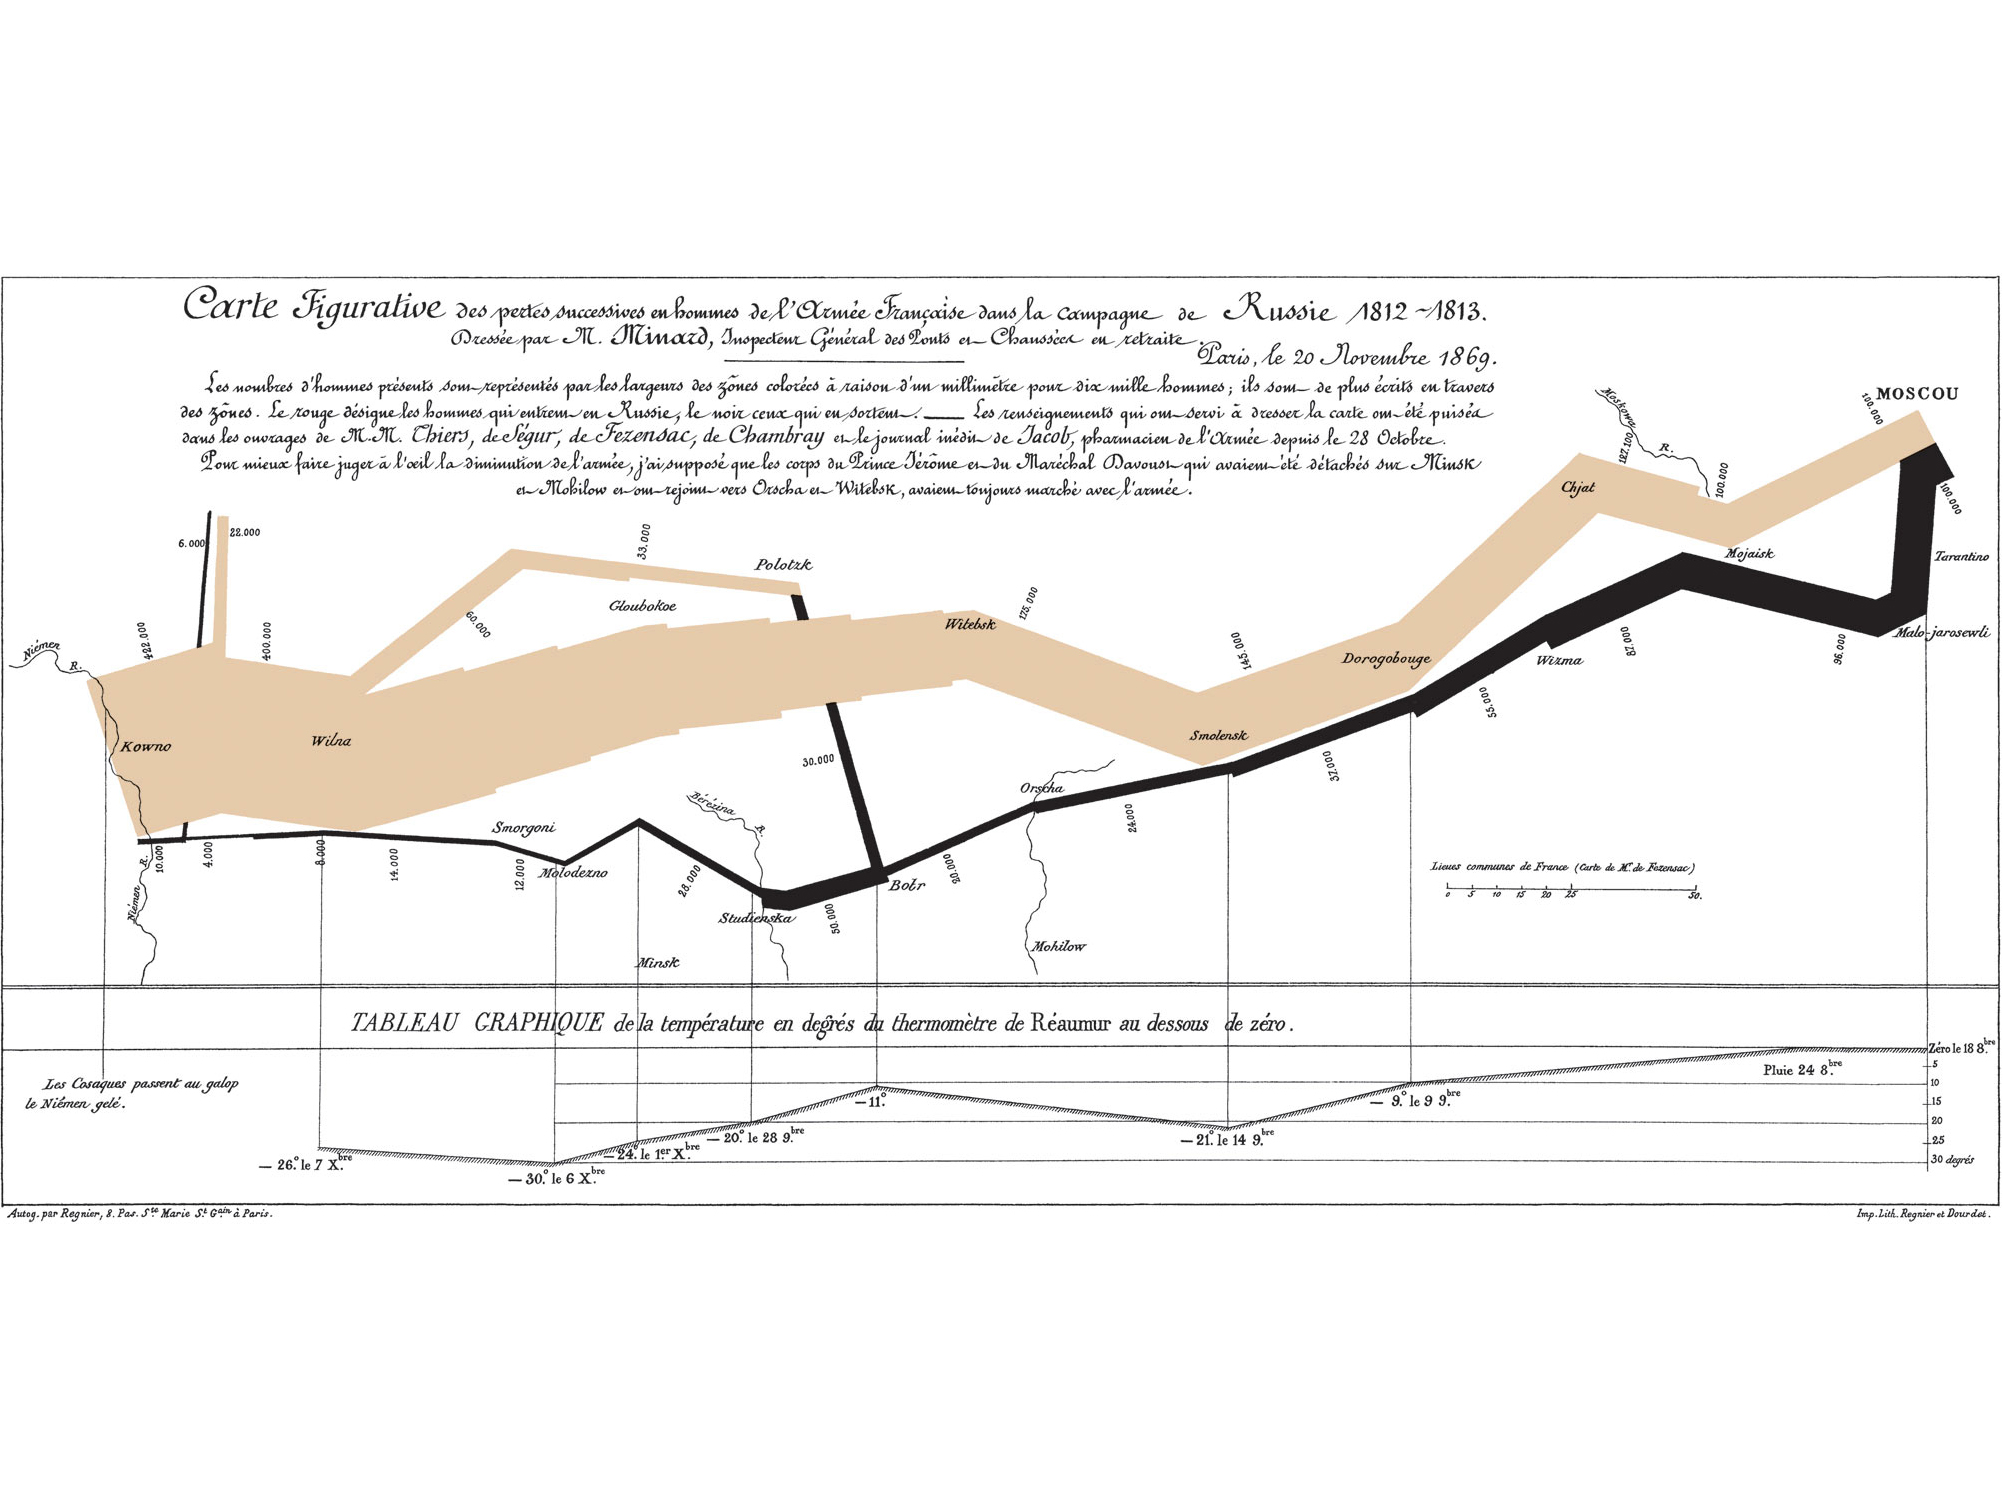 Carte Figurative des pertes successives en hommes de l'Armée Française dans la campagne de Russie 1812~1813.
Dressée par M. Minard, Inspecteur Général des Ponts et Chaussées en retraite.
Paris, le 20 Novembre 1869.
Les nombres d'hommes présents sont représentés par les largeurs des zônes colorées à raison d'un millimètre pour dix mille hommes; ils sont de plus écrits en travers
des zônes. Le rouge désigne les hommes qui entrent en Russie, le noir ceux qui en sortent. — Les renseignements qui ont servi à dresser la carte ont été puisés
dans les ouvrages de M.M. Thiers, de Ségur, de Fezensac, de Chambray et le journal inédit de Jacob, pharmacien de l'Armée depuis le 28 Octobre.
Pour mieux faire juger à l'œil la diminution de l'armée, j'ai supposé que les corps du Prince Jérôme et du Maréchal Davoust qui avaient été détachés sur Minsk
et Mohilow et ont rejoint vers Orscha et Witebsk, avaient toujours marché avec l'armée.
Moskowa R.
100.000
MOSCOU
127.100
100.000
Chjat
100.000
Mojaisk
Tarantino
6.000
22.000
33.000
Polotzk
Gloubokoe
60.000
175.000
Witebsk
422.000
400.000
Niémen R.
145.000
Dorogobouge
Wizma
87.000
96.000
Malo-jarosewli
55.000
Kowno
Wilna
Smolensk
30.000
32.000
Orscha
24.000
Bérézina R.
Smorgoni
10.000
4.000
8.000
14.000
12.000
Molodezno
28.000
Studienska
50.000
Bobr
20.000
Niémen R.
Minsk
Mohilow
Lieues communes de France (Carte de M.r de Fezensac)
0 5 10 15 20 25 50.
TABLEAU GRAPHIQUE de la température en degrés du thermomètre de Réaumur au dessous de zéro.
Zéro le 18 8.bre
Pluie 24 8.bre
5
10
15
20
25
30 degrés
Les Cosaques passent au galop
le Niémen gelé.
— 26.° le 7 X.bre
— 30.° le 6 X.bre
— 24.° le 1.er X.bre
— 20.° le 28 9.bre
— 11.°
— 21.° le 14 9.bre
— 9.° le 9 9.bre
Autog. par Regnier, 8. Pas. S.te Marie S.t G.ain à Paris.
Imp. Lith. Regnier et Dourdet.